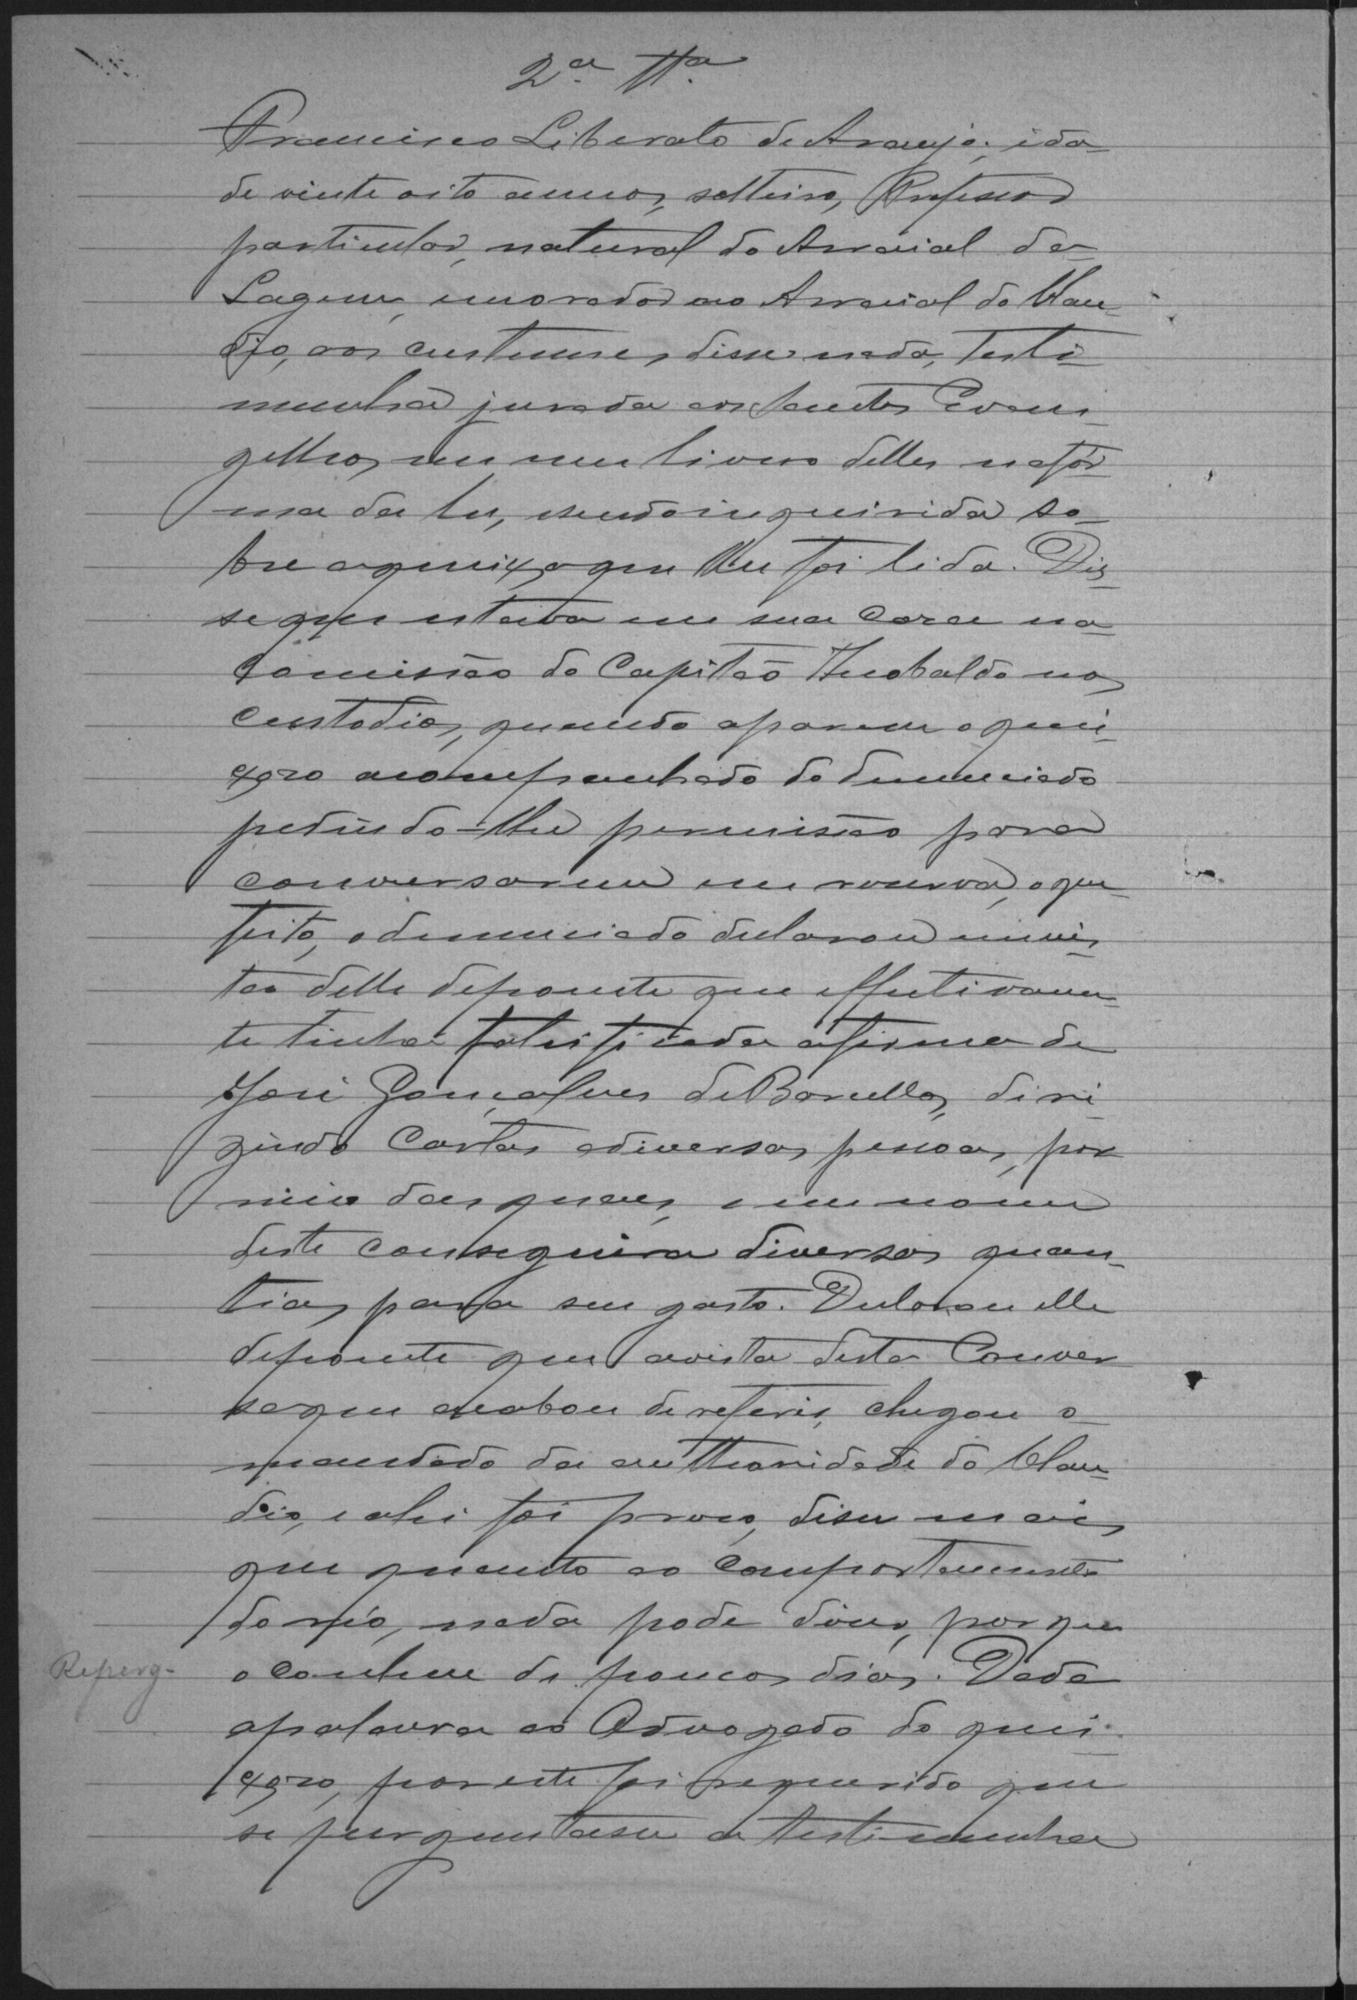 2.a Tta.
Francisco Liberato de Araujo, ida-
de vinte oito annos, solteiro, Professor
particular, natural do Arraial da
Lagem, e morador no Arraial do Clau-
dio, aos custumes disse nada, testi-
munha jurada aos Santos Evan-
gelhos, em um livro delles na fór-
ma da lei, e sendo inquirida so-
bre a queixa que lhe foi lida. Dis-
se que estava em sua casa na
comissão do Capitão Theobaldo nos
Custodios, quando aparece o quei-
xoso acompanhado do denunciado
pedindo-lhe permissão para
conversarem em reserva, o que
feito, o denunciado declarou em vis-
ta delle depoente que effectivamen-
te tinha falsificado a firma de
José Gonçalves de Barcellos, diri-
gindo Cartas a diversas pessoas, por
meio das quaes, e em nome
deste conseguira diversas quan-
tias para seu gasto. Declarou elle
depoente que a vista desta Conver
sa que acabou de referir, chegou o
mandado da authoridade do Clau-
dio, e ahi foi preso, disse mais
que quanto ao comportamento
do réo, nada pode dizer, porque
o conhece de poucos dias. Dada
Reperg-
a palavra ao Advogado do quei-
xoso, por este foi requerido que
se perguntasse a testimunha